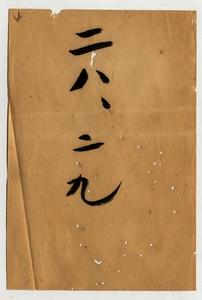 二八、二九